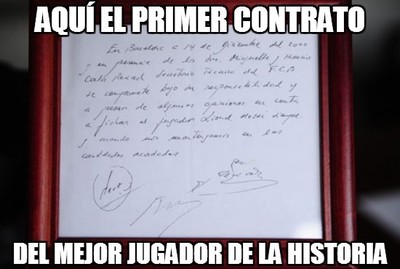 AQUÍ EL PRIMER CONTRATO
En Barcelona a 14 de Diciembre del 2000
y en presencia de los Srs. Minguella y Horacio
Carlos Rexach Secretario Técnico del F.C.B
se compromete bajo su responsabilidad y
a pesar de algunas opiniones en contra
a fichar al jugador Lionel Messi siempre
y cuando nos mantengamos en las
cantidades acordadas
DEL MEJOR JUGADOR DE LA HISTORIA